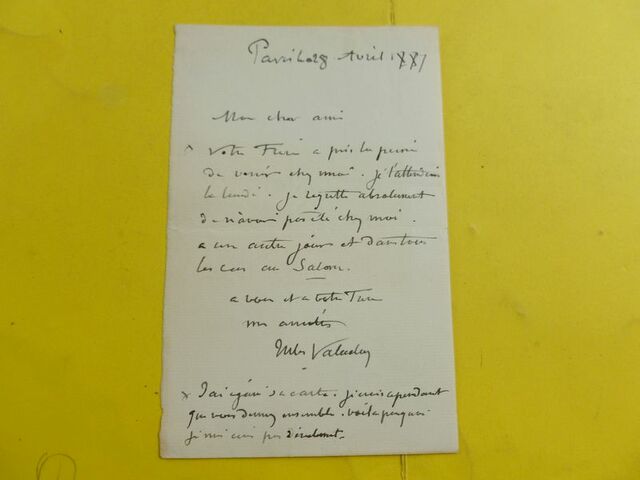 Paris le 28 Avril 1887
Mon cher ami
x Votre Frère a pris la peine
de venir chez moi. je l'attendais
le lundi. je regrette absolument
de n'avoir pas été chez moi.
a un autre jour et dans tous
les cas au Salon.
a vous et a votre Frère
mes amitiés
Jules Valadon
x J'ai égaré sa carte. je crois cependant
que vous demeurez ensemble. voila pourquoi
je